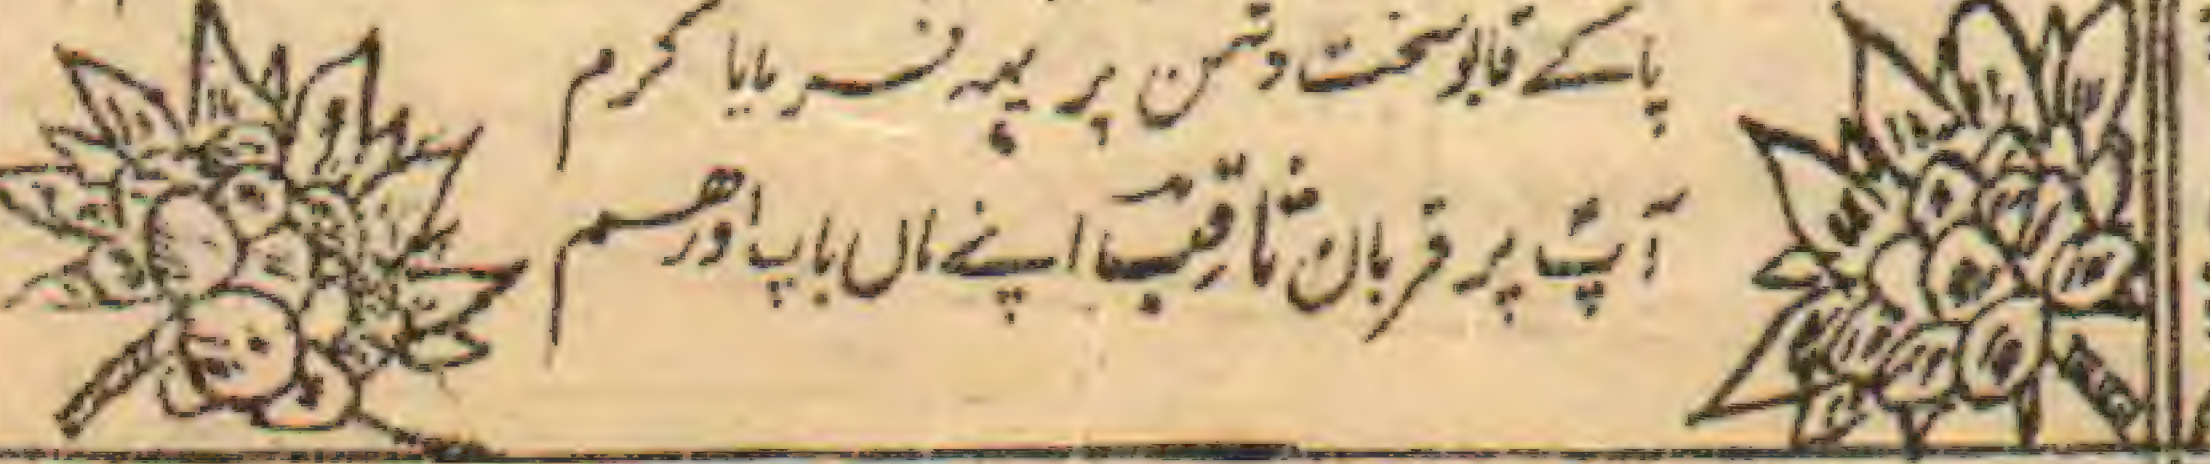 پا کے قابو سخت دشمن پر یہہ فرمایا کرم
آپؐ پر قربان ثاقبؔ اپنے ماں باپ اور ہم